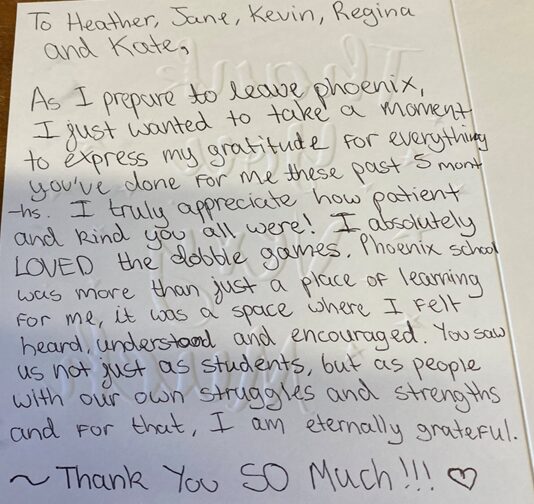 To Heather, Jane, Kevin, Regina
and Kate,
As I prepare to leave phoenix,
I just wanted to take a moment
to express my gratitude for everything
you've done for me these past 5 mont
-hs. I truly appreciate how patient
and kind you all were! I absolutely
LOVED the dobble games. Phoenix school
was more than just a place of learning
for me, it was a space where I felt
heard, understood and encouraged. You saw
us not just as students, but as people
with our own struggles and strengths
and for that, I am eternally grateful.
~ Thank You SO Much!!! ♡
Thank
you
Very
Much